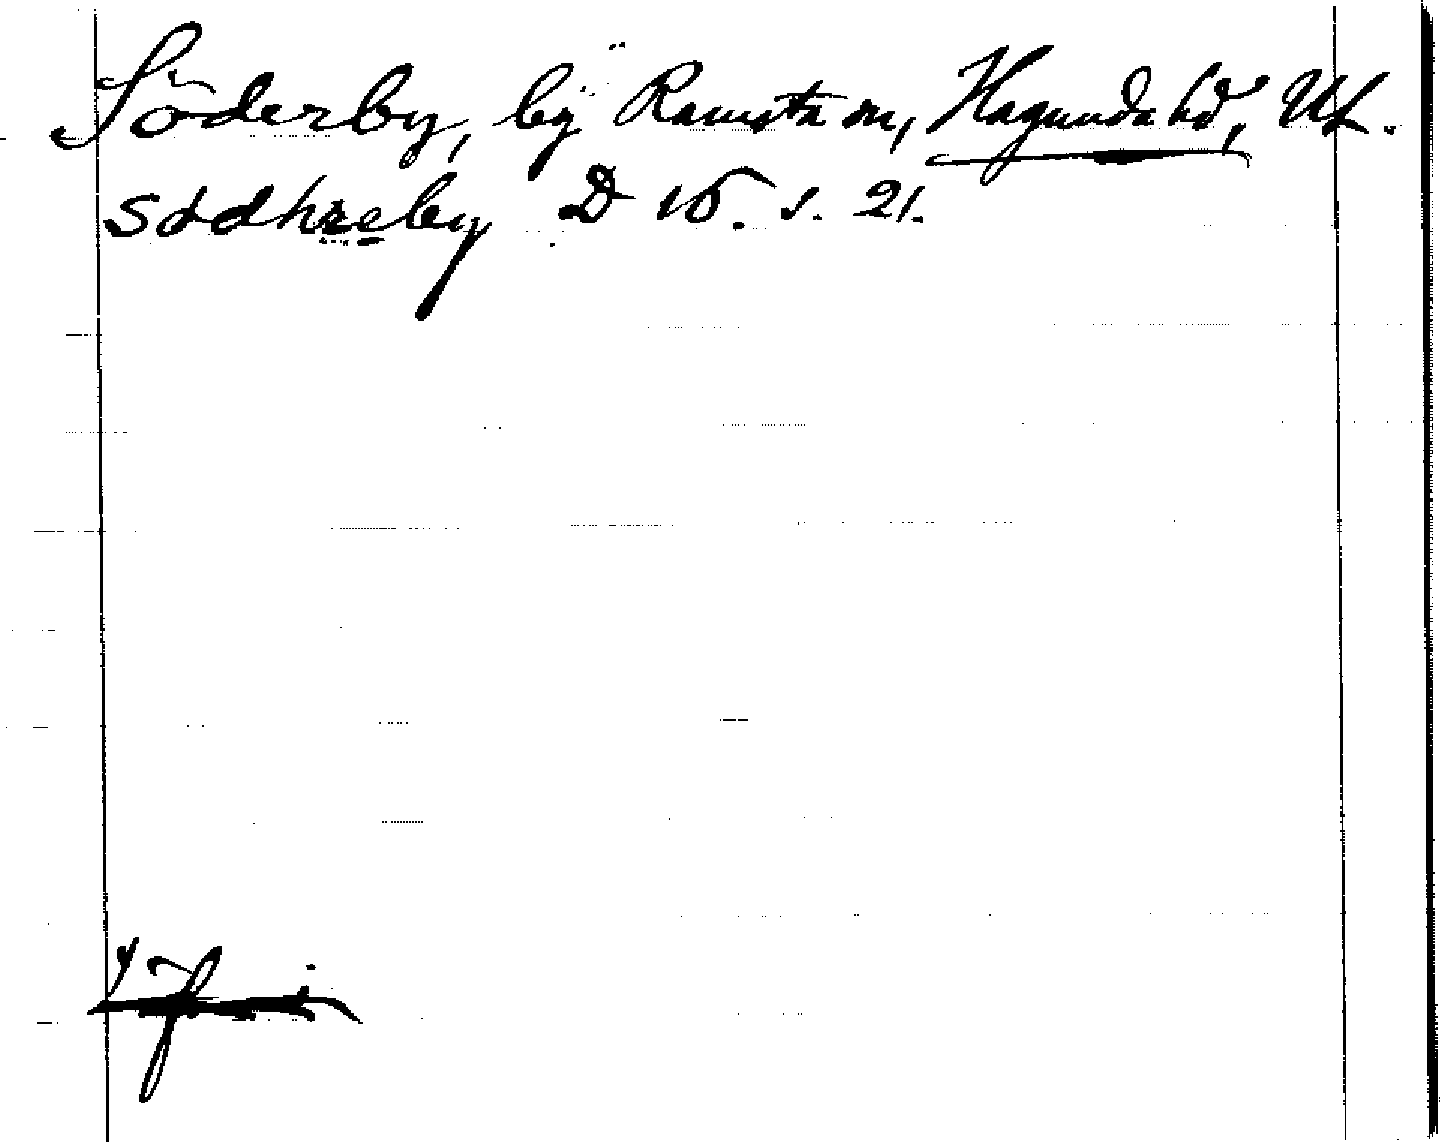 Söderby, by Ramsta sn, Hagunda hd, Upl.
Södhreby D 15. s. 21.